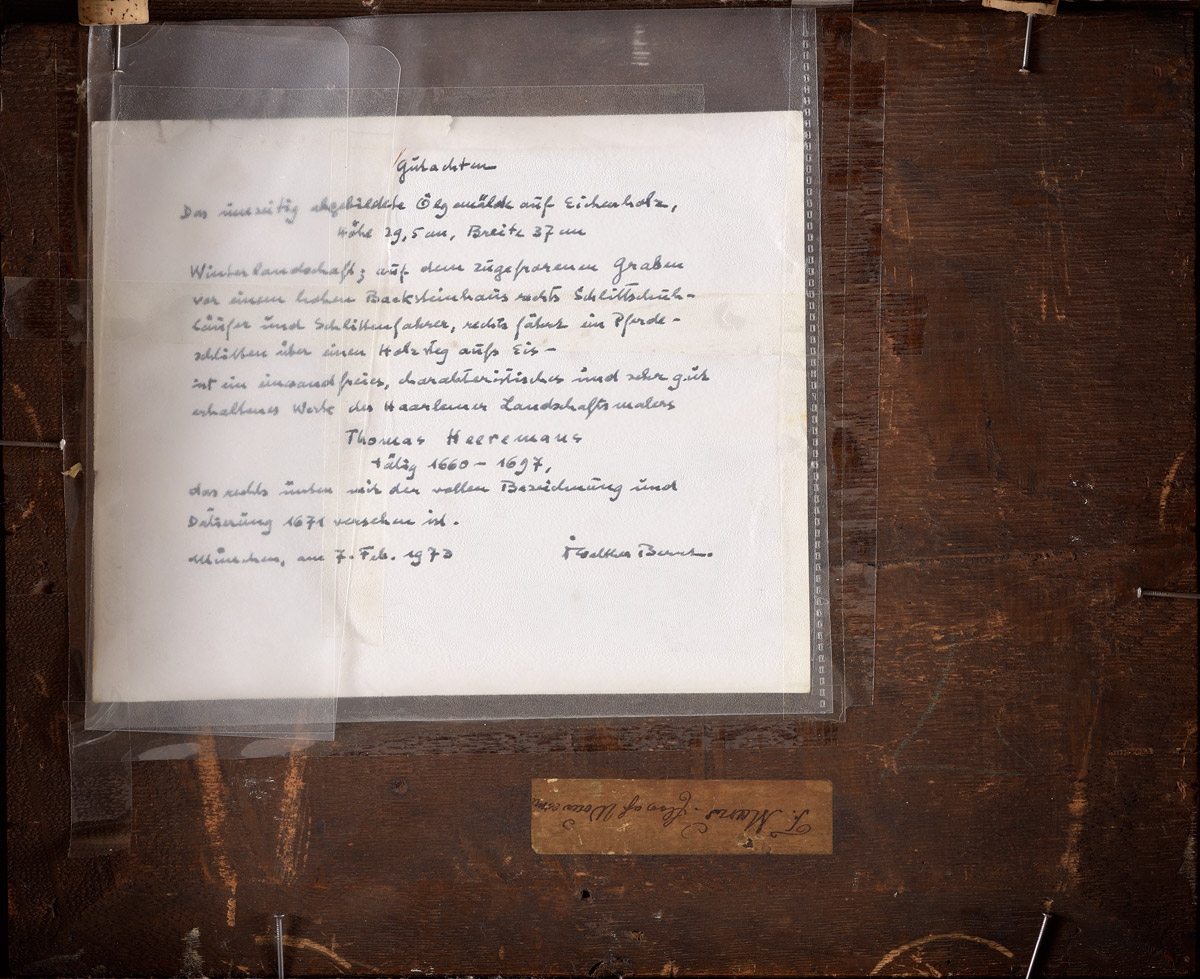 Gutachten
Das umseitig abgebildete Ölgemälde auf Eichenholz,
Höhe 29,5 cm, Breite 37 cm
Winterlandschaft; auf dem zugefrorenen Graben
vor einem hohen Backsteinhaus rechts Schlittschuh-
läufer und Schlittenfahrer, rechts fährt ein Pferde-
schlitten über einen Holzsteg aufs Eis –
ist ein einwandfreies, charakteristisches und sehr gut
erhaltenes Werk des Haarlemer Landschaftsmalers
Thomas Heeremans
tätig 1660 – 1697,
das rechts unten mit der vollen Bezeichnung und
Datierung 1671 versehen ist.
München, am 7. Feb. 1973 Walther Bernt.